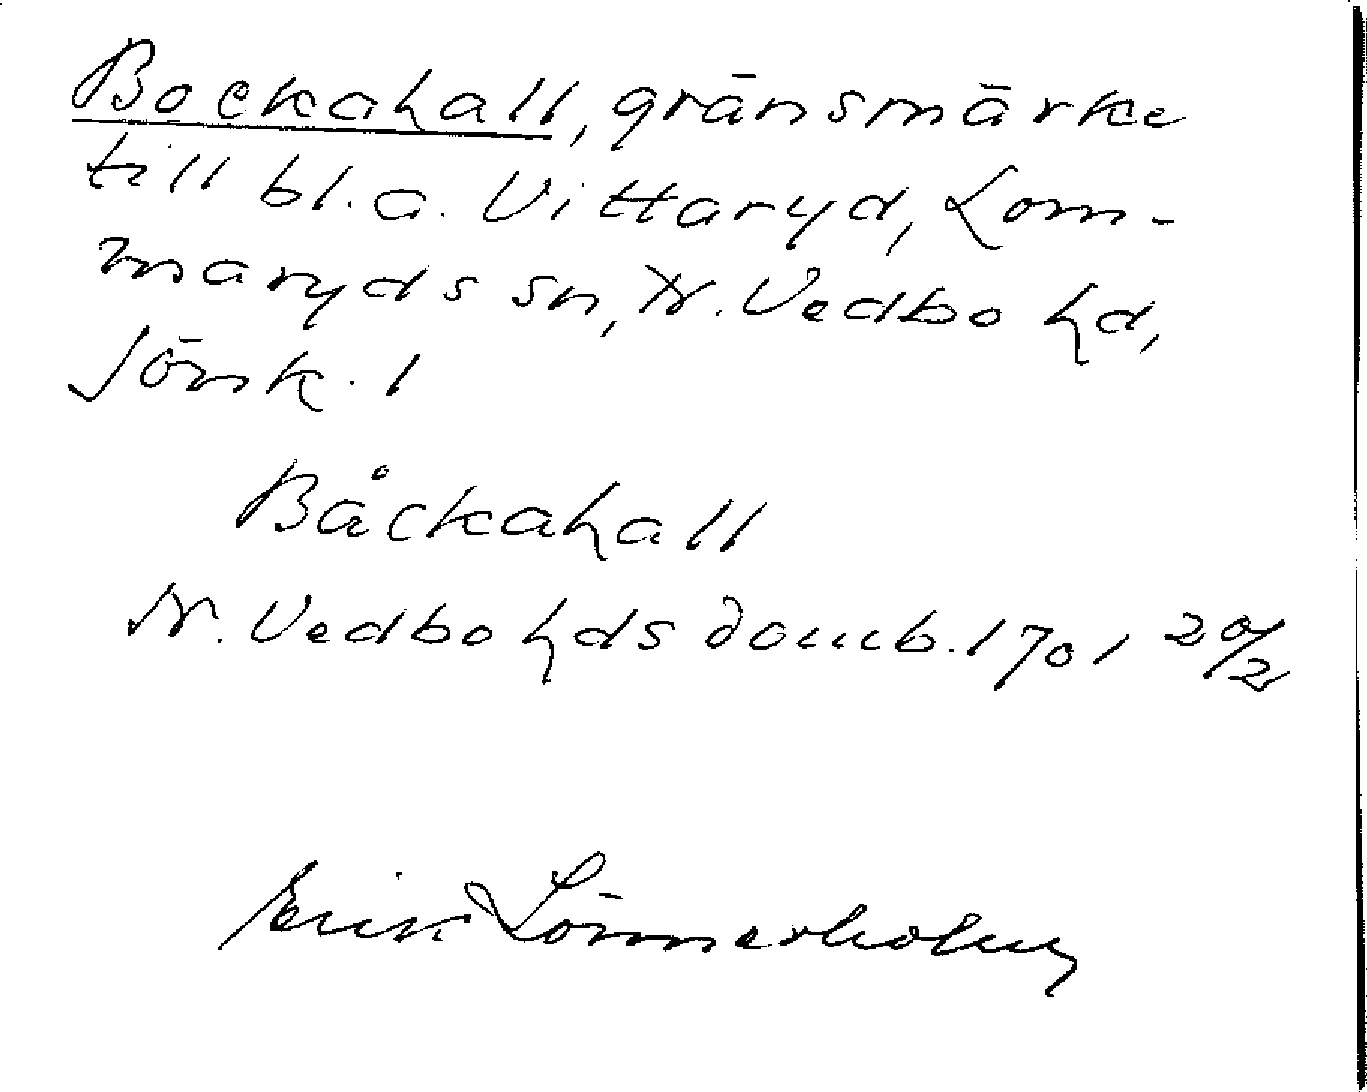 Bockahall, gränsmärke
till bl.a. Vittaryd, Lom-
maryds sn, N. Vedbo hd,
Jönk. l
Båckahall
N. Vedbo hds domb. 1701 20/2
Erik Lönnerholm